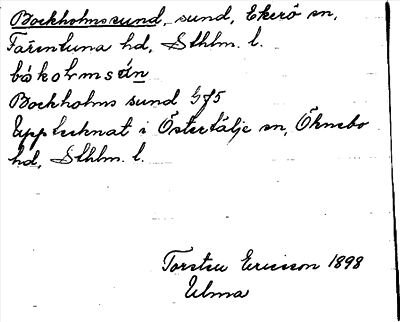 Bockholmssund, sund, Ekerö sn,
Färentuna hd, Sthlm. l.
båkolmsún
Bockholms sund Gf5
Upptecknat i Östertälje sn, Öknebo
hd, Sthlm. l.
Torsten Ericsson 1898
Ulma